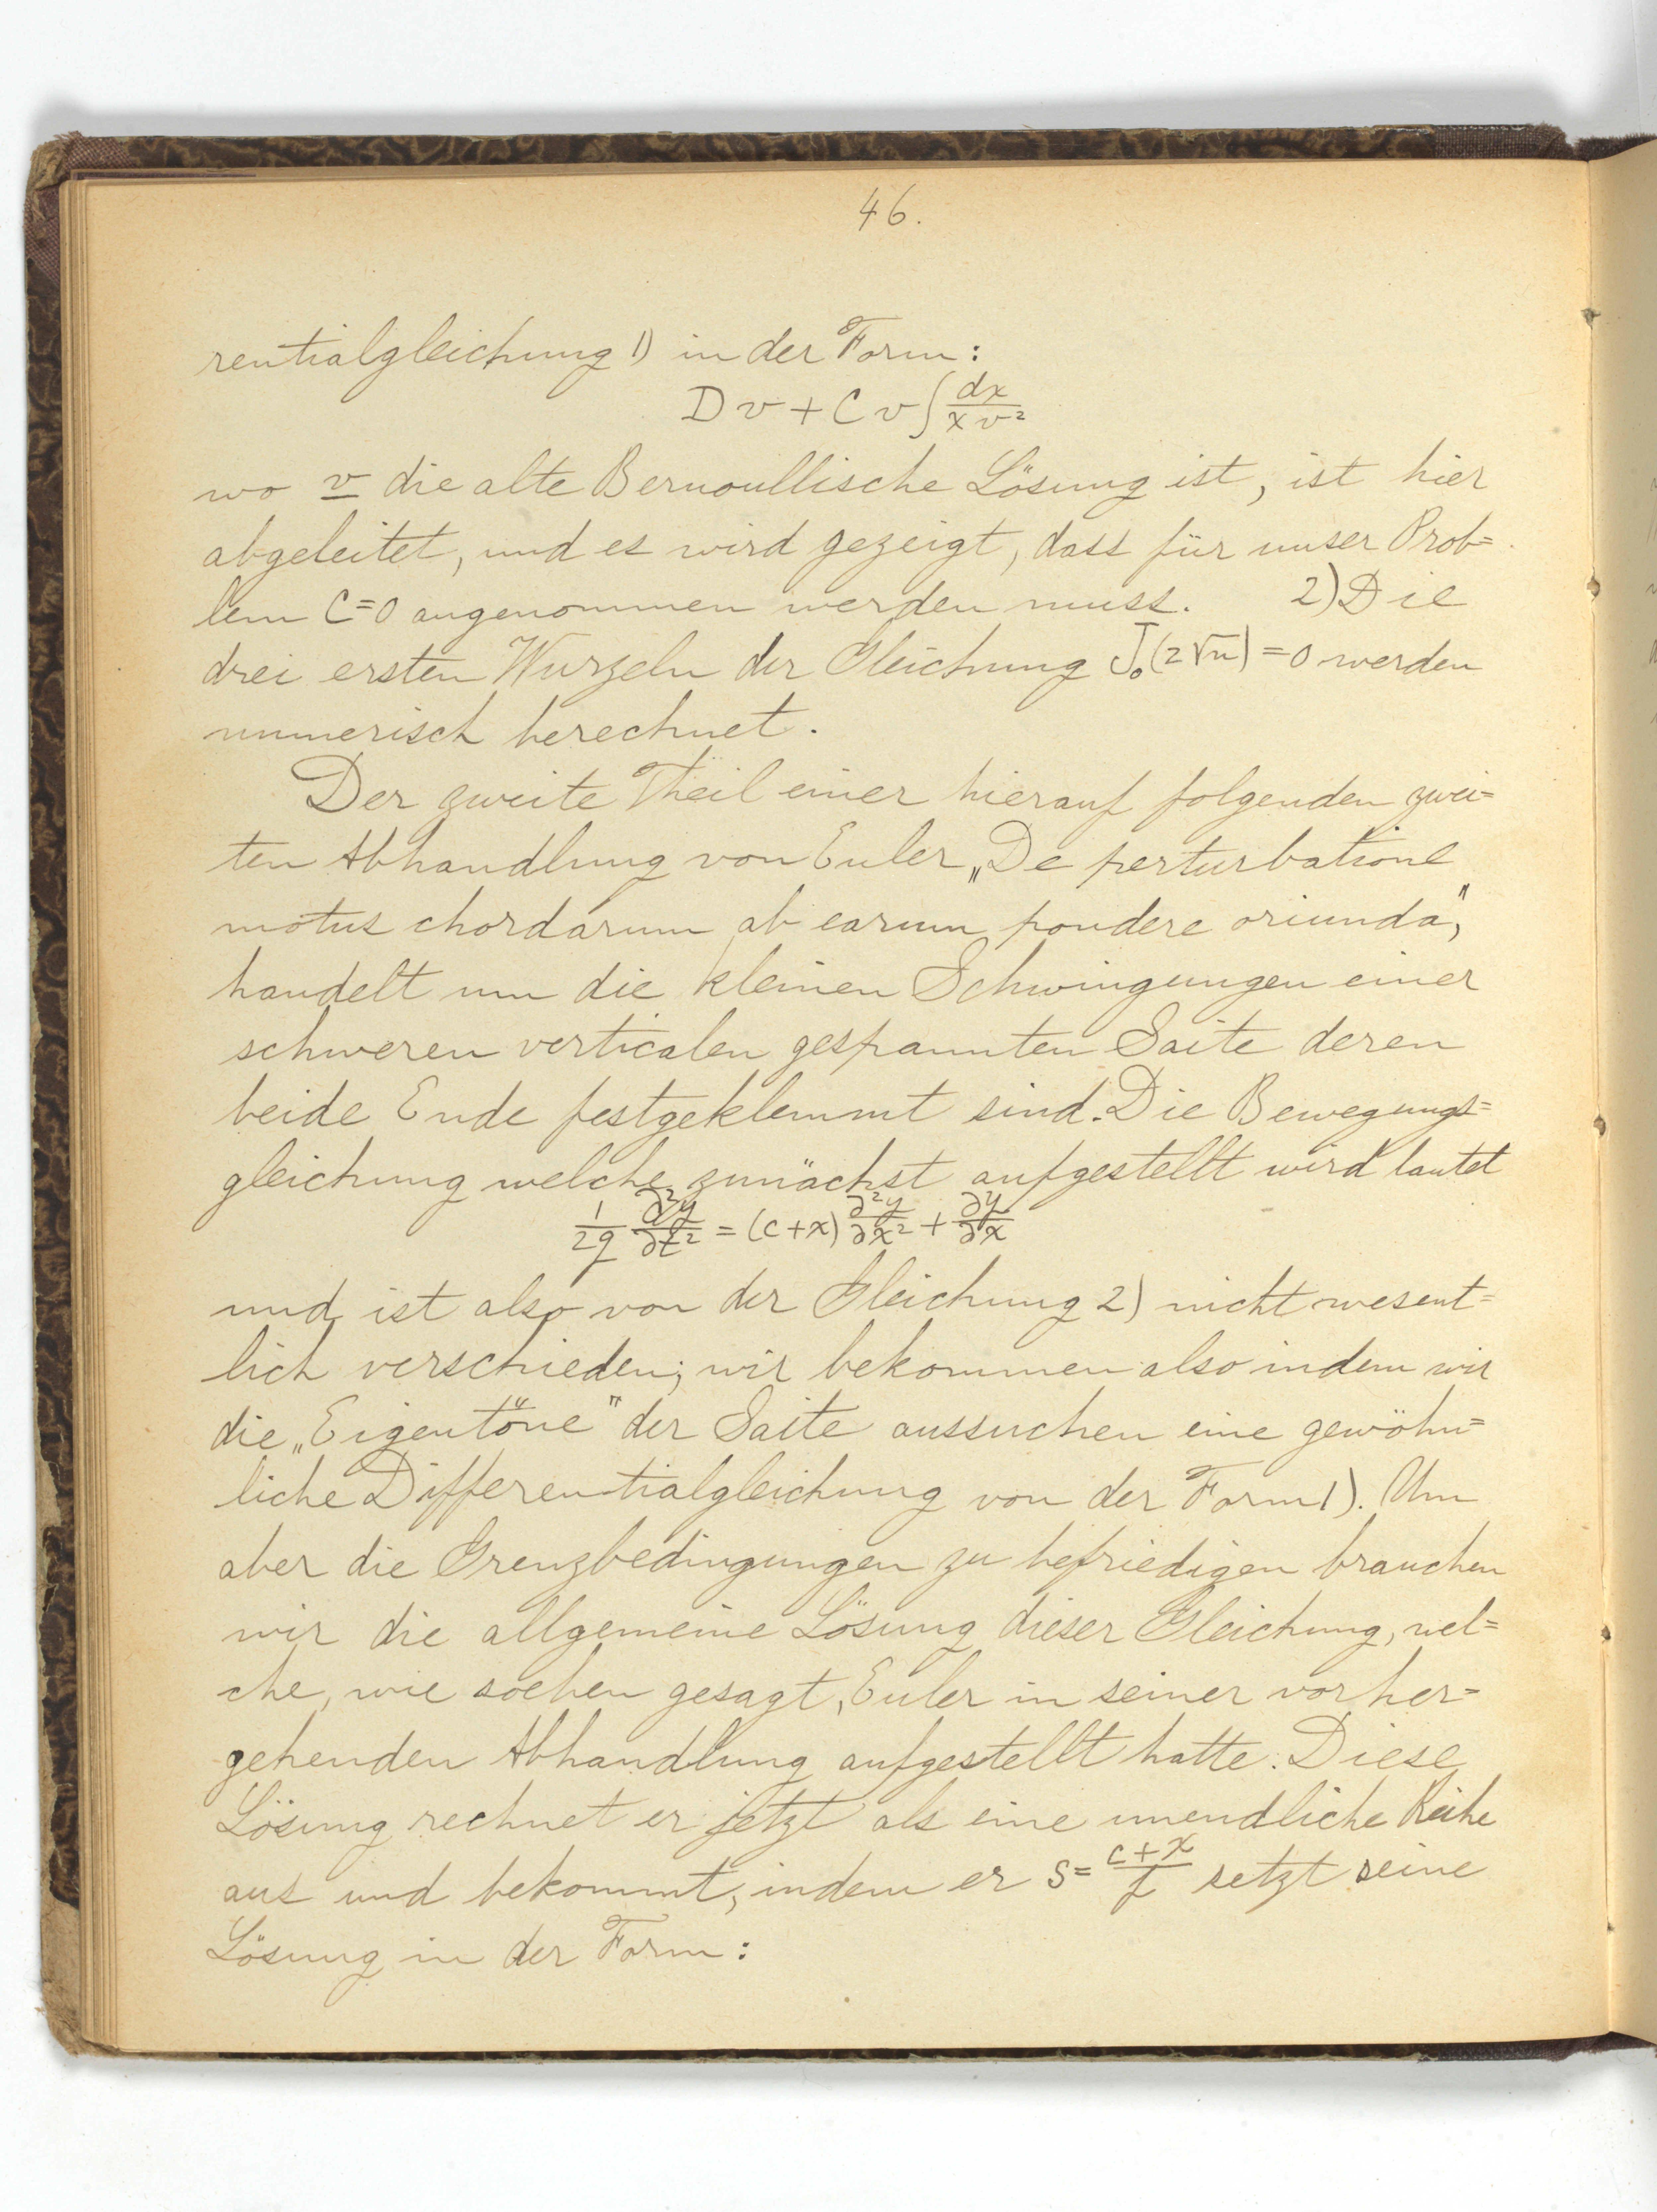 46.
rentialgleichung 1) in der Form:
D v + C v ∫ dx / x v²
wo v die alte Bernoullische Lösung ist, ist hier
abgeleitet, und es wird gezeigt, dass für unser Prob=
lem C=0 angenommen werden muss. 2) Die
drei ersten Wurzeln der Gleichung J₀(2√n)=0 werden
numerisch berechnet.
Der zweite Theil einer hierauf folgenden zwei=
ten Abhandlung von Euler „De perturbatione
motus chordarum ab earum pondere oriunda",
handelt um die kleinen Schwingungen einer
schweren verticalen gespannten Saite deren
beide Ende festgeklemmt sind. Die Bewegungs=
gleichung welche zunächst aufgestellt wird lautet
1/2g ∂²y/∂t² = (c+x) ∂²y/∂x² + ∂y/∂x
und ist also von der Gleichung 2) nicht wesent=
lich verschieden; wir bekommen also indem wir
die „Eigentöne" der Saite aussuchen eine gewöhn=
liche Differentialgleichung von der Form 1). Um
aber die Grenzbedingungen zu befriedigen brauchen
wir die allgemeine Lösung dieser Gleichung, wel=
che, wie soeben gesagt, Euler in seiner vorher=
gehenden Abhandlung aufgestellt hatte. Diese
Lösung rechnet er jetzt als eine unendliche Reihe
aus und bekommt, indem er s= c+x/f setzt seine
Lösung in der Form: